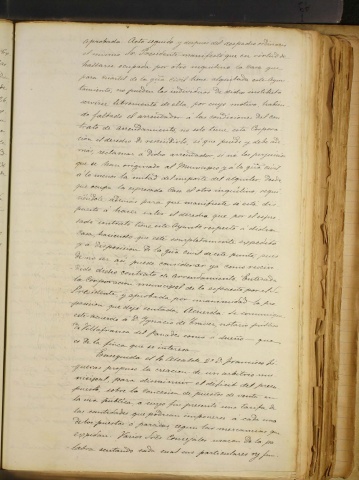 aprobada. Acto seguido y despues del despacho ordinario
el mismo Sr. Presidente manifestó que en virtud de
hallarse ocupada por otro inquilino la casa que
para cuartel de la guia civil tiene alquilada este Ayun-
tamiento, no pueden los individuos de dicho instituto
servirse libremente de ella, por cuyo motivo habien-
do faltado el arrendador a las condiciones del con-
trato de arrendamiento, no solo tiene esta Corpora-
cion el derecho de rescindirlo, si que puede y debe ade-
más, reclamar a dicho arrendador
que se han originado al Municipio y a la guia civil
ó la mitad del importe del alquiler desde
que ocupa la expresada casa el otro inquilino
para que manifieste si está dis-
puesto a hacer valer el derecho que por el expre-
sado contrato tiene este Ayunto respecto a dicha
casa, haciendo que esté completamente expedita
y a disposicion de la guia civil de este punto, pues
de no ser así puede considerar ya como rescin-
dido dicho contrato de arrendamiento. Enterada
la Corporacion municipal de lo expuesto por el Sr.
Presidente, y aprobada por unanimidad la pro-
posicion que deja sentada, acuerda se comunique
este acuerdo a D. Ignacio de notario publico
de Villafranca del Panadés como dueño
es de la finca que se interesa.
Enseguida el Sr. Alcalde 2º D. Francisco
propuso la creacion de un arbitrio mu-
nicipal para disminuir el deficit del presu-
puesto sobre la concesion de puestos de venta en
la via publica, a cuyo fin presentó una tarifa de
las cantidades que podrian imponerse a cada uno
de los puestos ó paradas segun las mercancias que
expidan. Varios Sres Concejales usaron de la pa-
labra sentando cada cual sus particulares opinio-